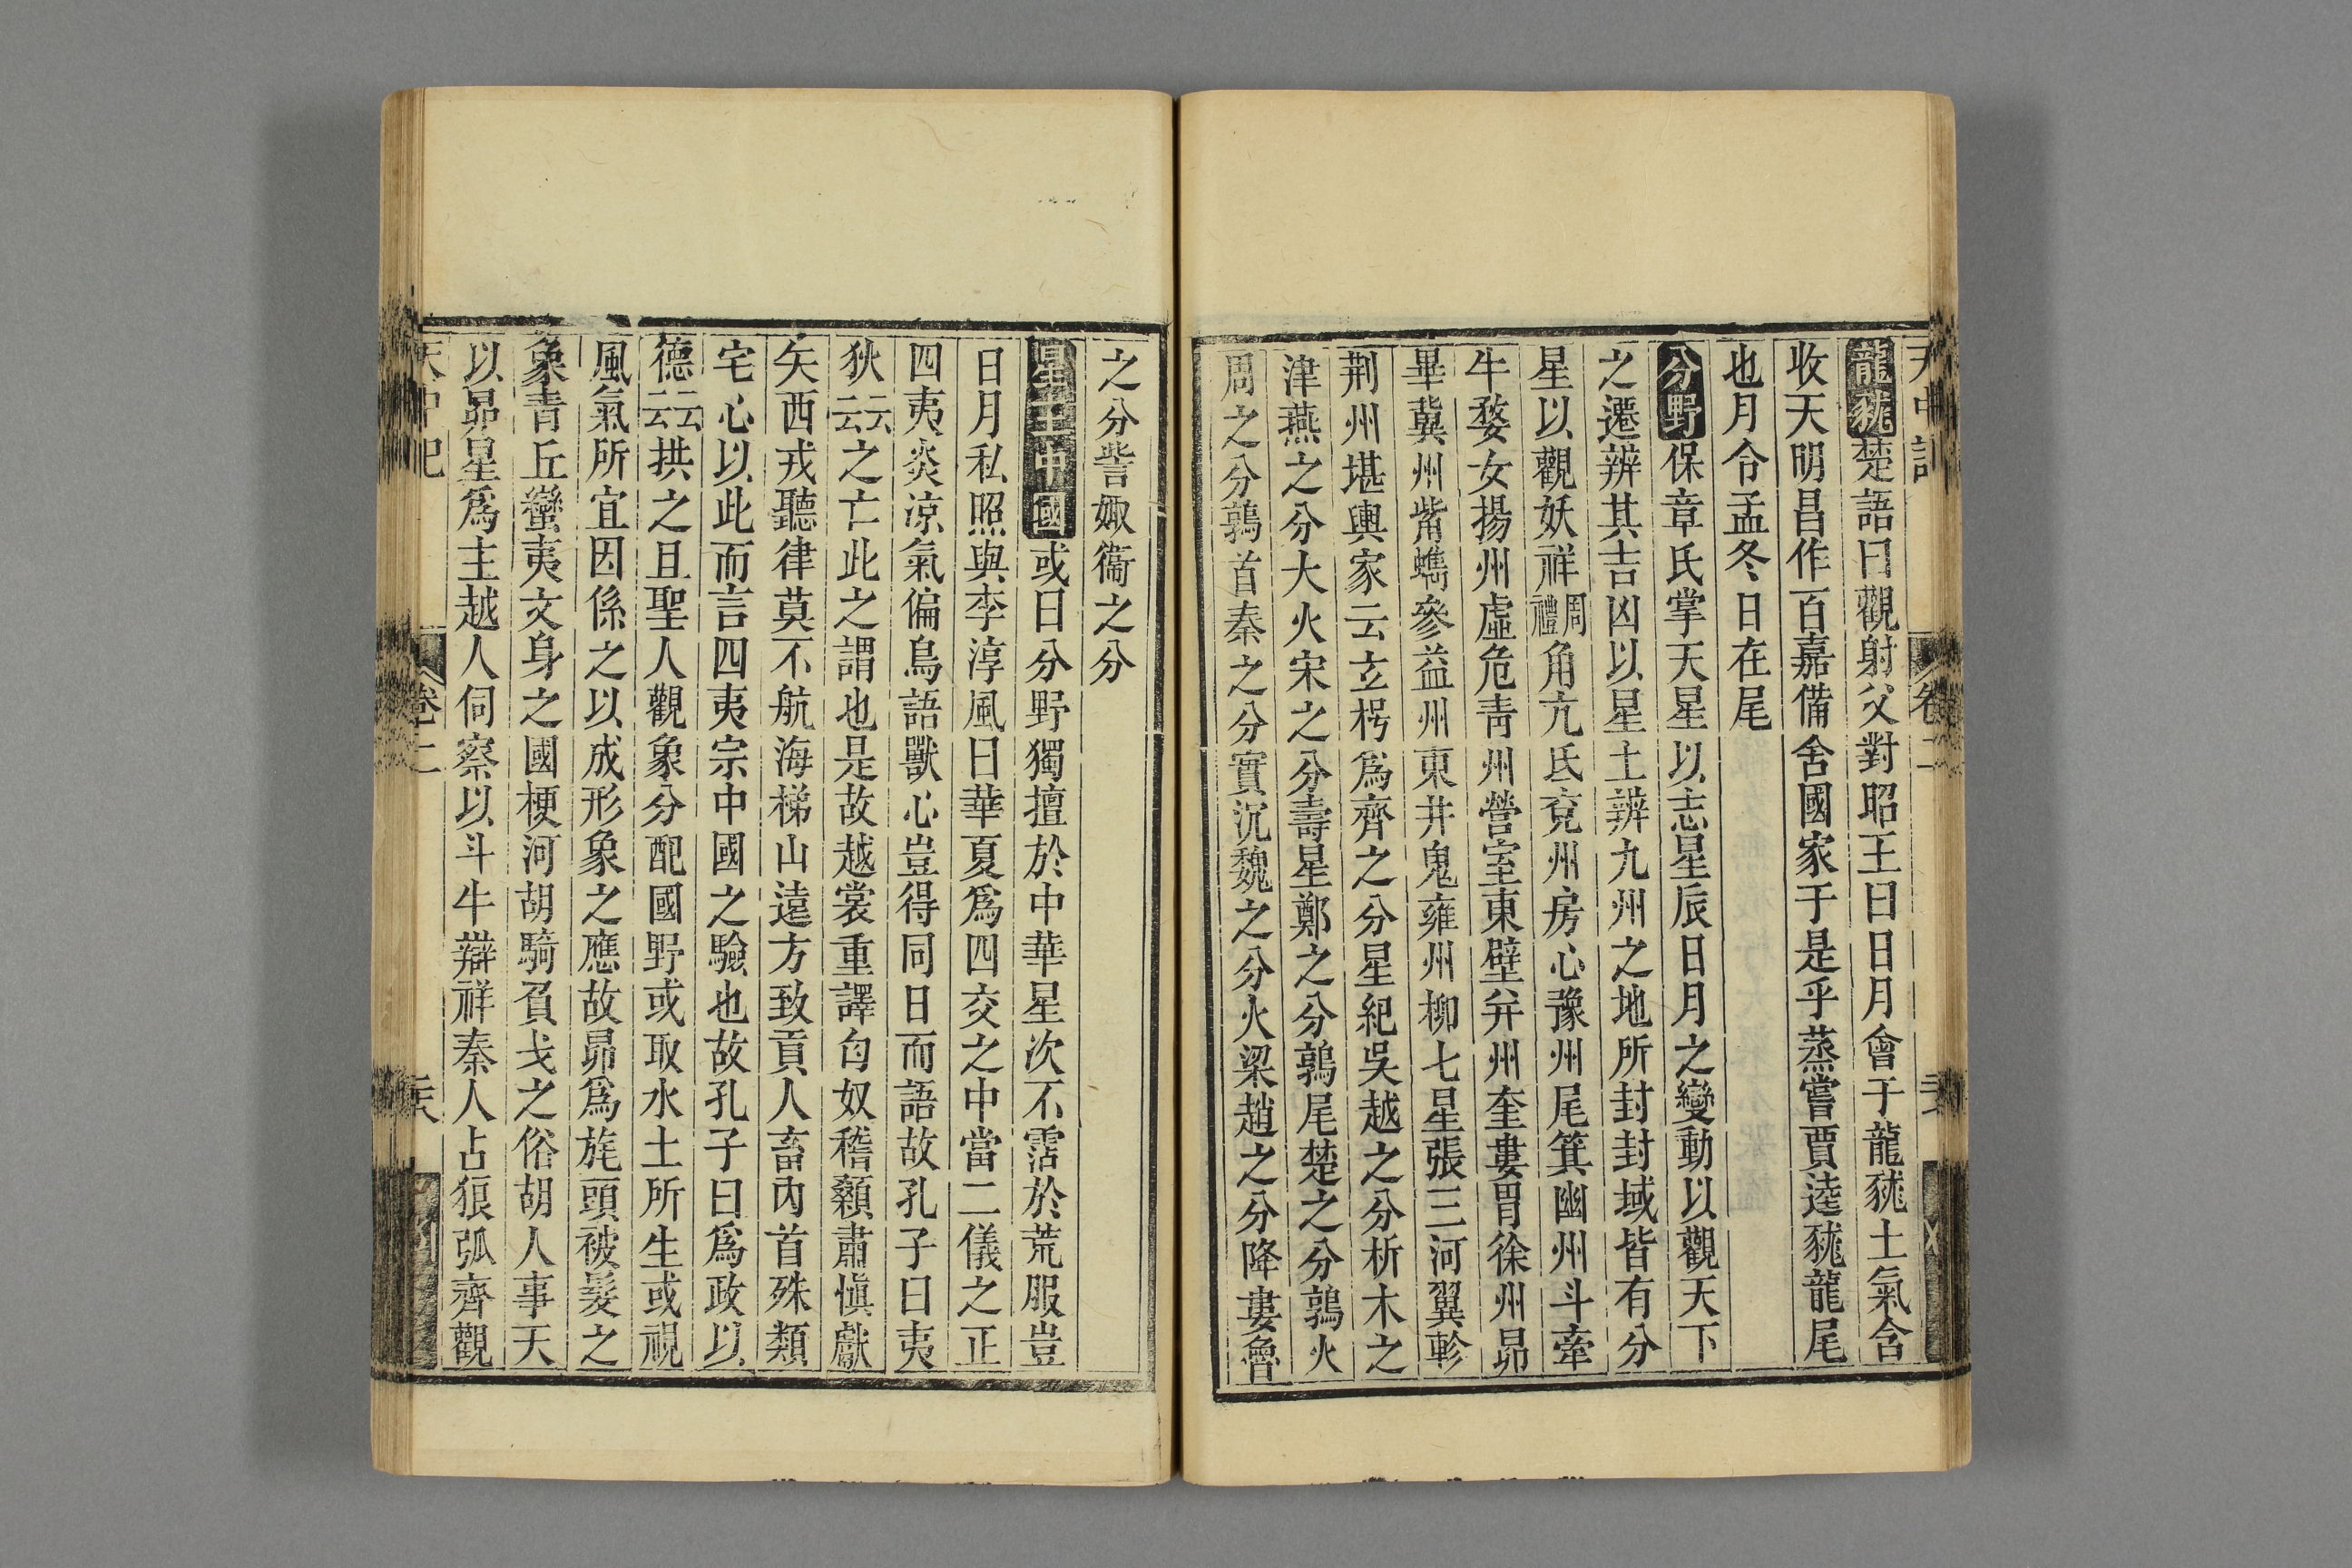 天中記
卷二
龍㺔楚語曰觀射父對昭王曰日月會于龍㺔土氣含
收天明昌作百嘉備舍國家于是乎蒸嘗賈逵㺔龍尾
也月令孟冬日在尾
分野保章氏掌天星以志星辰日月之變動以觀天下
之遷辨其吉凶以星土辨九州之地所封封域皆有分
星以觀妖祥周禮角亢氐兗州房心豫州尾箕幽州斗牽
牛婺女揚州虛危靑州營室東壁幷州奎婁胃徐州昴
畢冀州觜蠵參益州東井鬼雍州柳七星張三河翼軫
荆州堪輿家云玄枵爲齊之分星紀吳越之分析木之
津燕之分大火宋之分壽星鄭之分鶉尾楚之分鶉火
周之分鶉首秦之分實沉魏之分火梁趙之分降婁魯
之分訾娵衞之分
星主中國或曰分野獨擅於中華星次不霑於荒服豈
日月私照與李淳風曰華夏爲四交之中當二儀之正
四夷炎凉氣偏鳥語獸心豈得同日而語故孔子曰夷
狄云云之亡此之謂也是故越裳重譯匈奴稽顙肅愼獻
矢西戎聽律莫不航海梯山遠方致貢人畜內首殊類
宅心以此而言四夷宗中國之驗也故孔子曰爲政以
德云云拱之且聖人觀象分配國野或取水土所生或視
風氣所宜因係之以成形象之應故昴爲旄頭被髮之
象青丘蠻夷文身之國梗河胡騎負戈之俗胡人事天
以昴星爲主越人伺察以斗牛辯祥秦人占狼弧齊觀
天中記
卷二